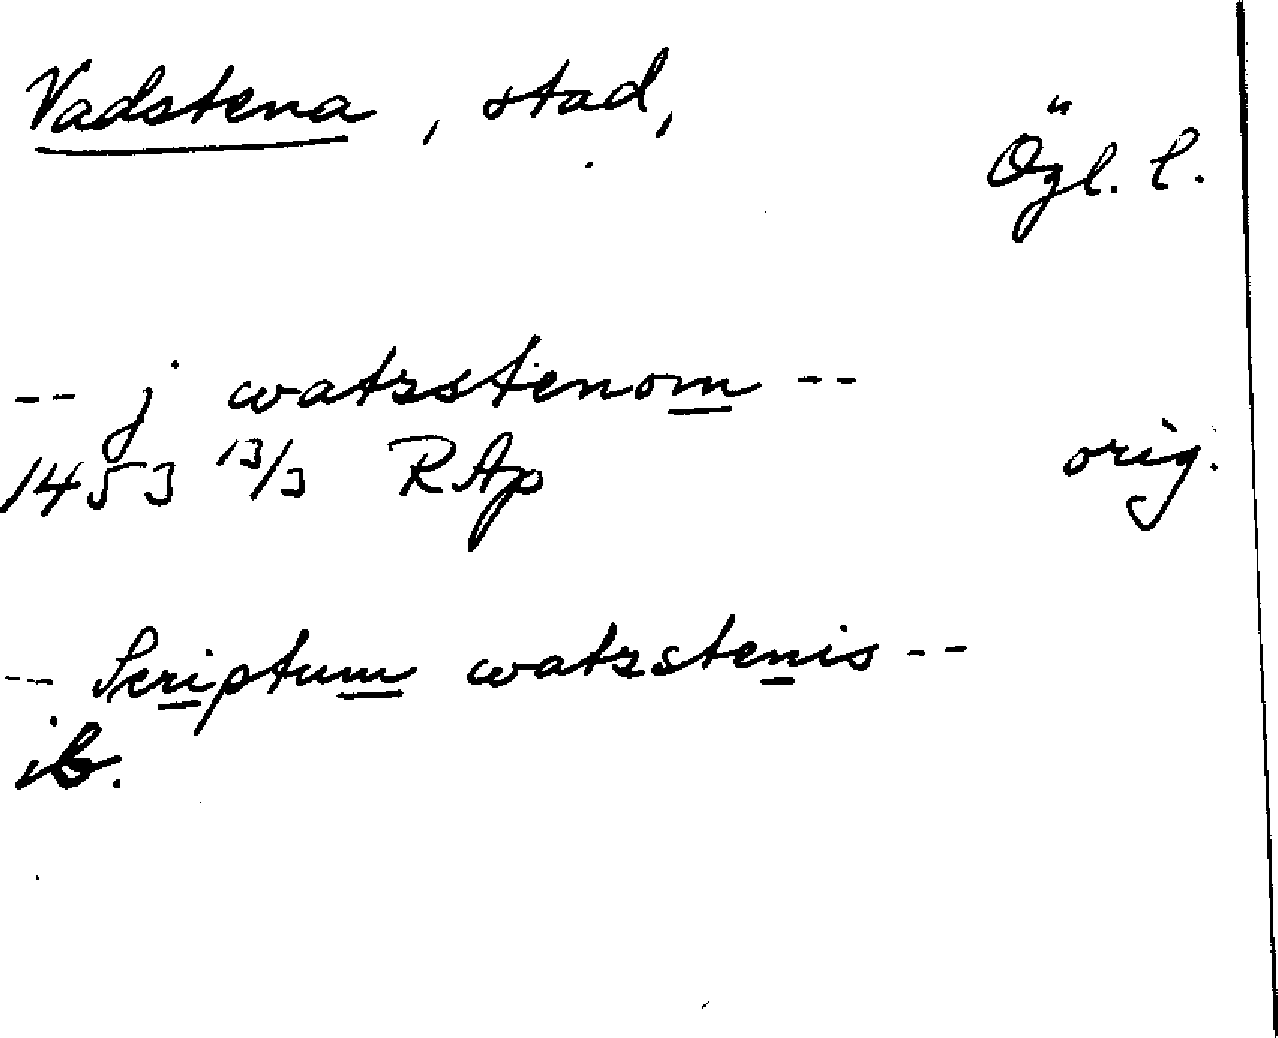 Vadstena, stad,
Ögl. l.
-- j watzstenom --
1453 13/3 RAp orig.
-- Scriptum watzstenis --
ib.